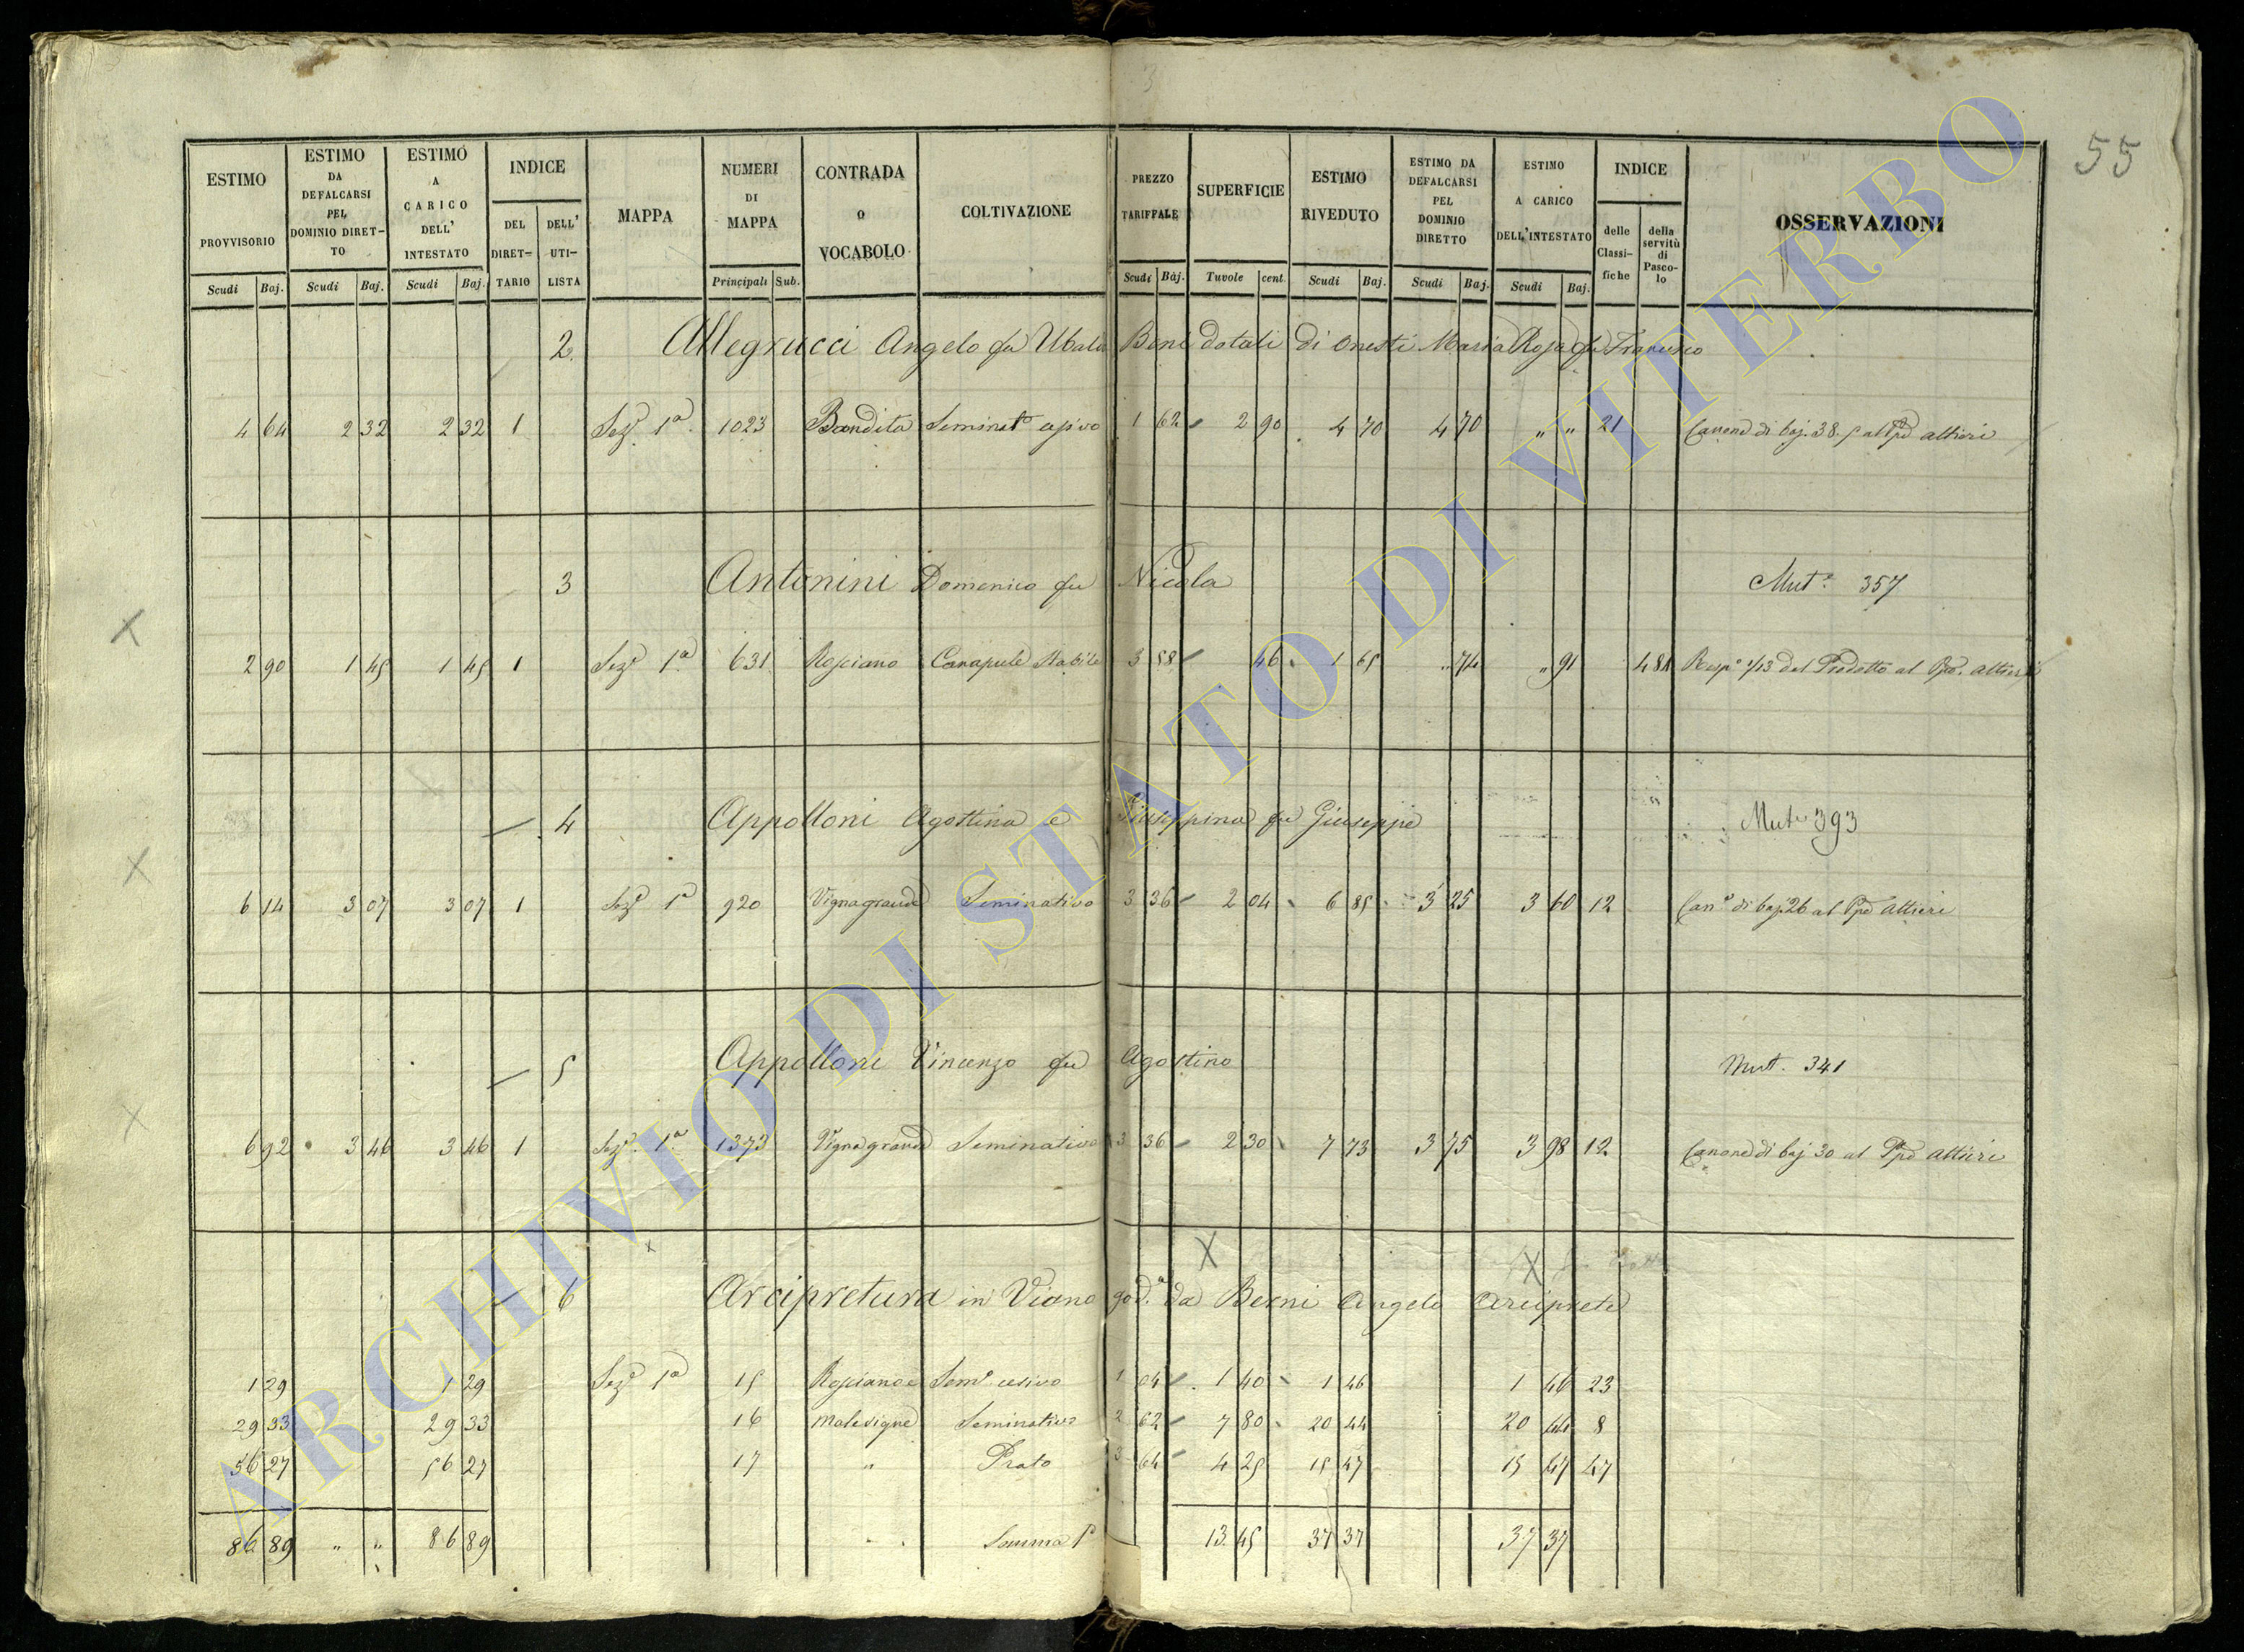 55
ESTIMO PROVVISORIO Scudi Baj.
ESTIMO DA DEFALCARSI PEL DOMINIO DIRETTO Scudi Baj.
ESTIMO A CARICO DELL' INTESTATO Scudi Baj.
INDICE DEL DIRETTARIO DELL' UTILISTA
MAPPA
NUMERI DI MAPPA Principali Sub.
CONTRADA o VOCABOLO
COLTIVAZIONE
PREZZO TARIFFALE Scudi Baj.
SUPERFICIE Tavole cent.
ESTIMO RIVEDUTO Scudi Baj.
ESTIMO DA DEFALCARSI PEL DOMINIO DIRETTO Scudi Baj.
ESTIMO A CARICO DELL'INTESTATO Scudi Baj.
INDICE delle Classifiche della servitù di Pascolo
OSSERVAZIONI
2. Allegrucci Angelo fu Ubaldo Beni dotali di Onesti Maria Rosa fu Francesco
4 64 2 32 2 32 1 Sez.e 1a 1023 Bandita Seminat.o 1 62 2 90 4 70 4 70 " " 21 Canone di baj. 38.5 al Ppe Altieri
3 Antonini Domenico fu Nicola Mut.e 357
2 90 1 45 1 45 1 Sez.e 1a 631 Rosciano Canapule Stabile 3 58 46 1 65 " 74 " 91 Resp.e 1/13 del Prodotto al Ppe. Altieri
4 Appolloni Agostina e Giuseppina fu Giuseppe Mut.e 393
6 14 3 07 3 07 1 Sez.e 1a 920 Vignagrande Seminativo 3 36 2 04 6 85 3 25 3 60 12 Can.e di baj 26 al Ppe Altieri
5 Appolloni Vincenzo fu Agostino Mut. 341
6 92 3 46 3 46 1 Sez.e 1a 1373 Vignagrande Seminativo 3 36 2 30 7 73 3 75 3 98 12 Canone di baj 30 al Ppe Altieri
6 Arcipretura in Viano god.a da Berni Angelo Arciprete
1 29 1 29 Sez.e 1a 15 Rosciano Sem.o 1 04 1 40 1 46 1 46 23
29 33 29 33 16 Malevigne Seminativo 2 62 7 80 20 44 20 44 8
56 27 56 27 17 " Prato 3 64 4 25 15 47 15 47 47
86 89 " " 86 89 Somma 13 45 37 37 37 37
ARCHIVIO DI STATO DI VITERBO